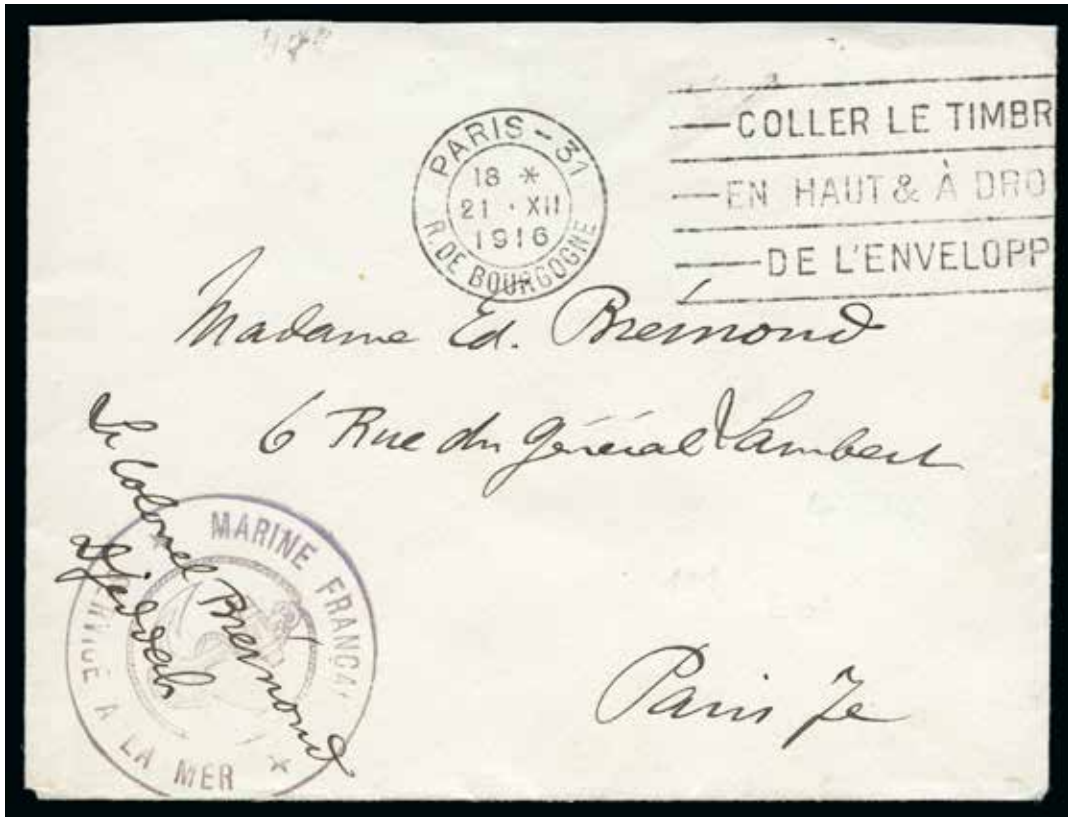 PARIS - 31
18 *
21 · XII
1916
R. DE BOURGOGNE
COLLER LE TIMBR
EN HAUT & À DRO
DE L'ENVELOPP
Madame Ed. Bremond
6 Rue du Général Lambert
Paris 7e
Le Colonel Brémond
Djeddah
MARINE FRANÇAI
À LA MER